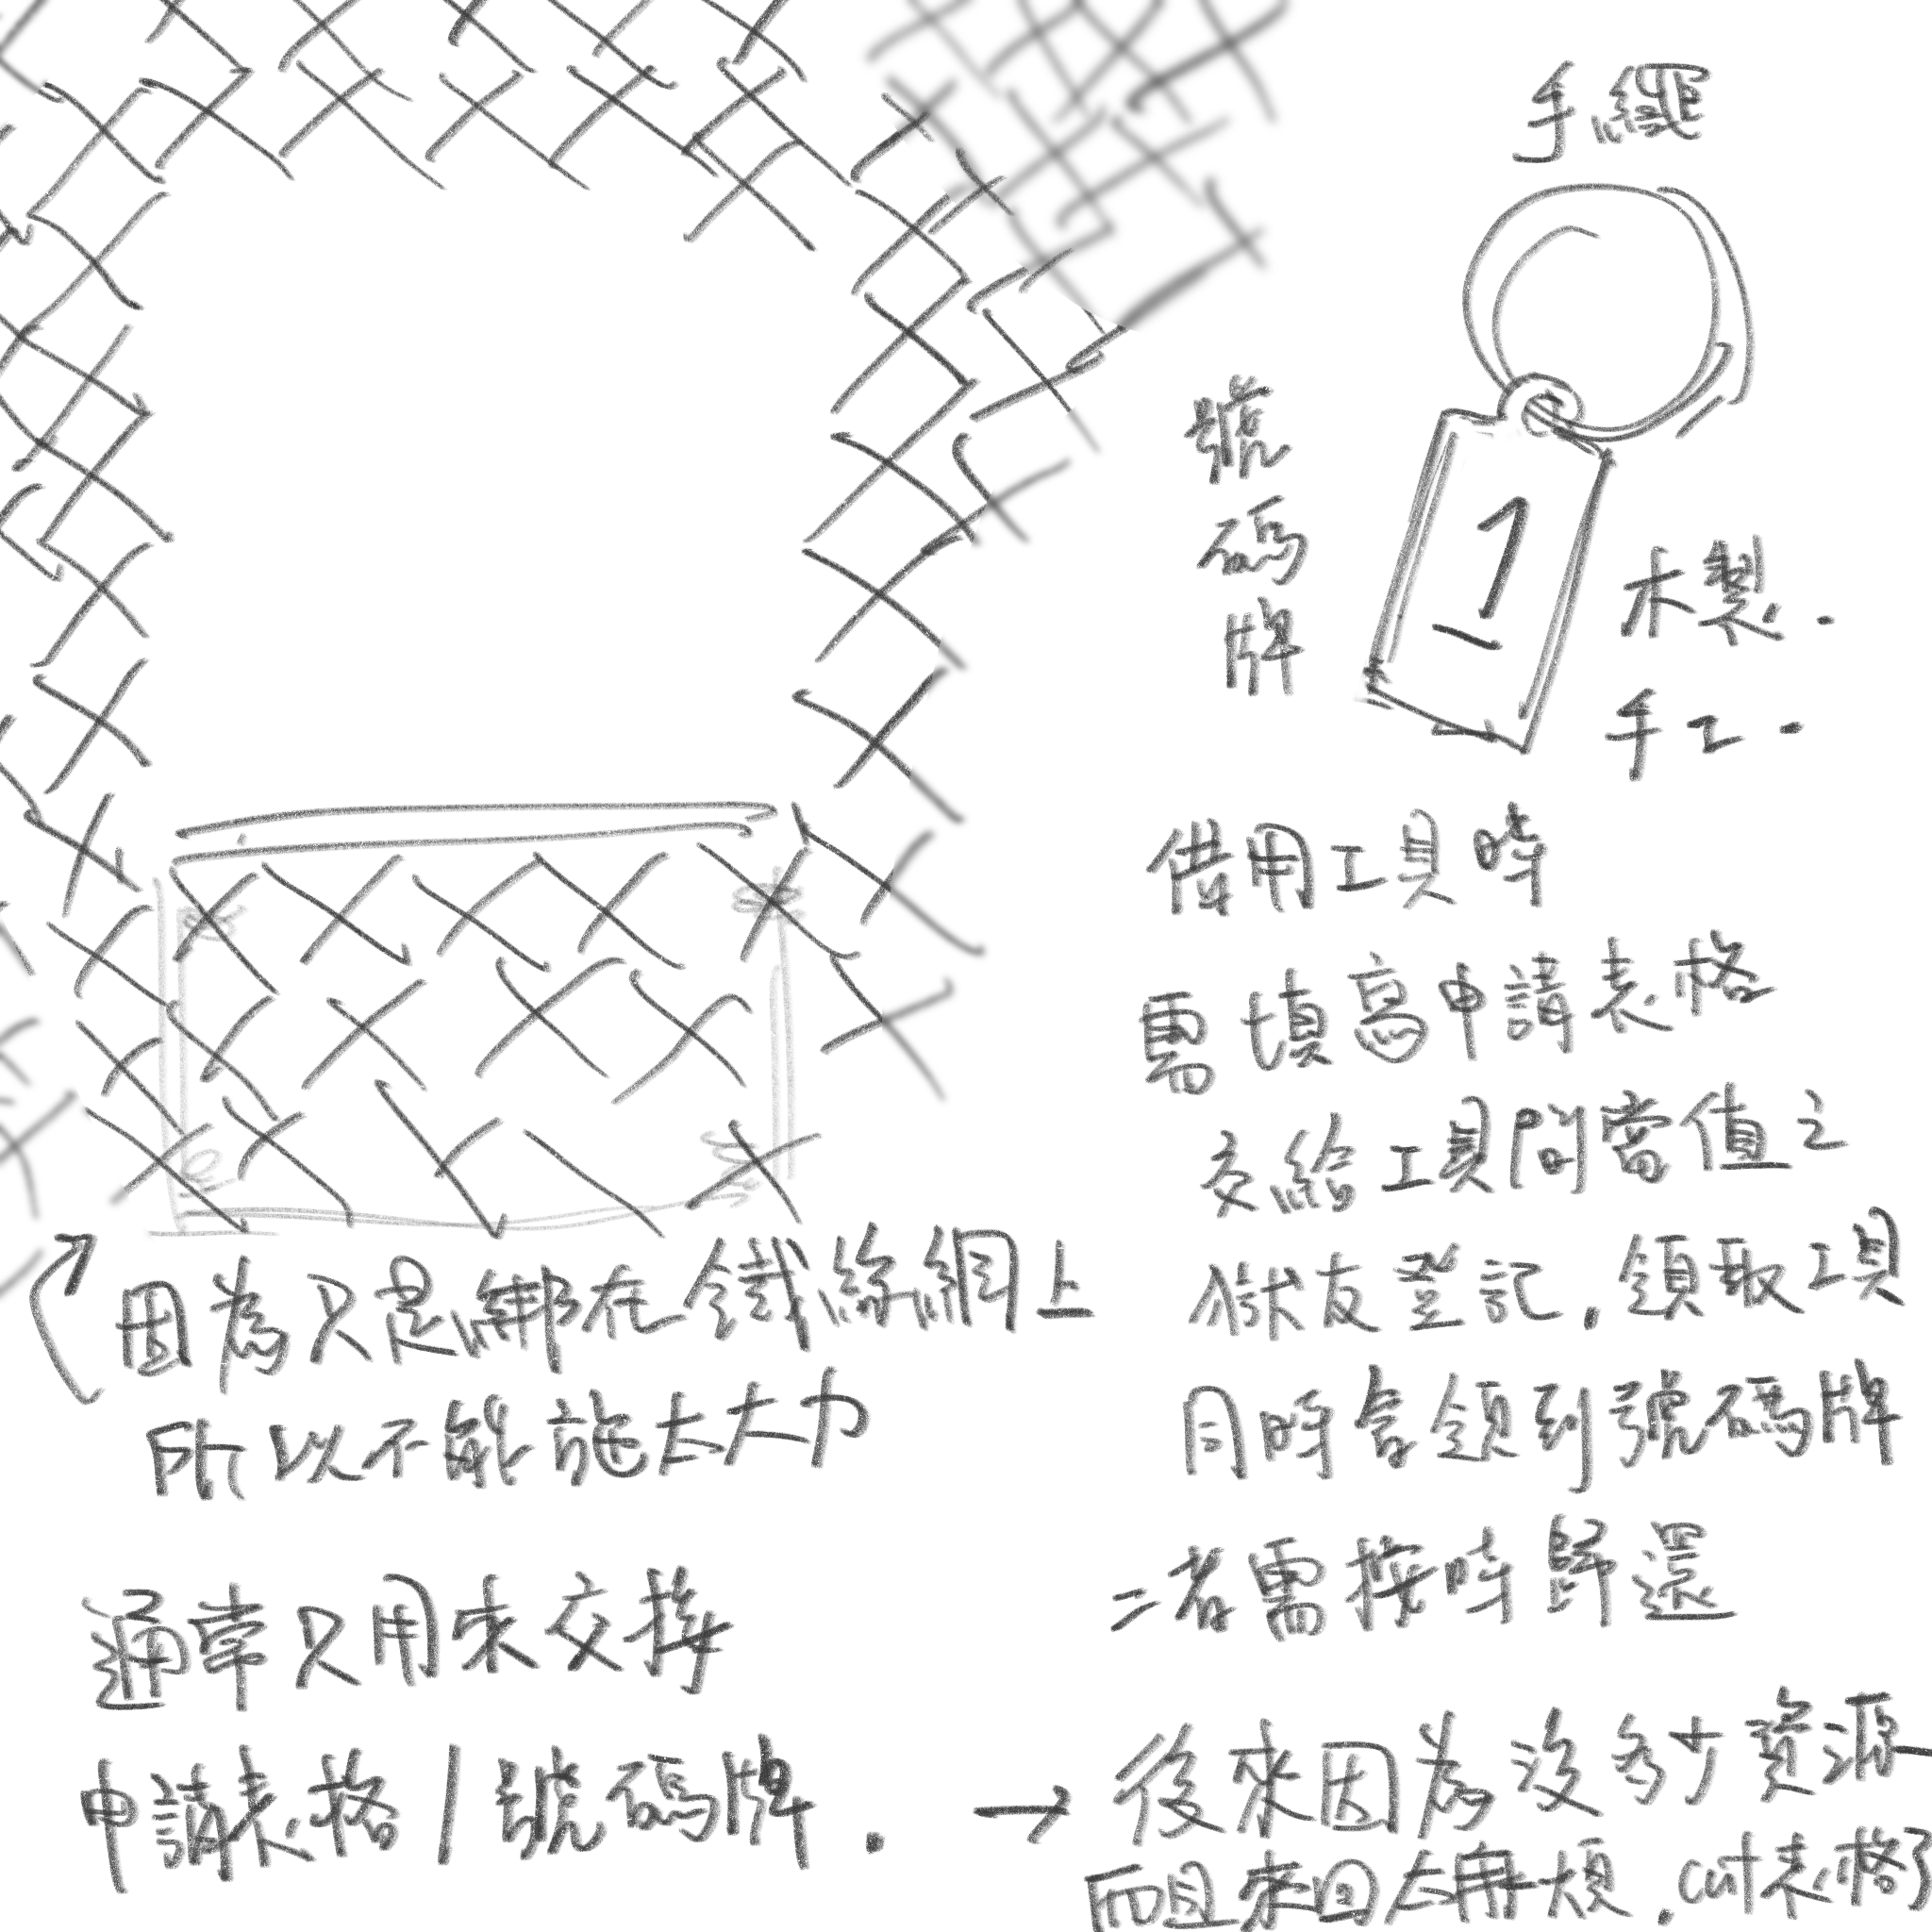 手繩
號碼牌
1
木製.
手工.
借用工具時
需填寫申請表格
交給工具間當值之
獄友登記,領取工具
同時會領到號碼牌
二者需按時歸還
因為只是綁在鐵絲網上
所以不能施太大力
通常只用來交接
申請表格/號碼牌.
→後來因為沒多少資源
而且來回太麻煩.cut表格了